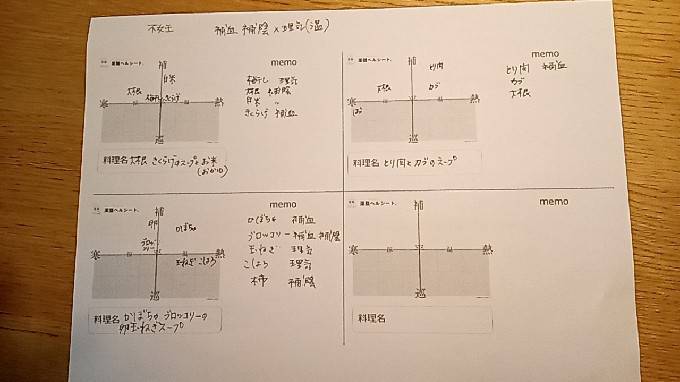 補血 補陰 × 理気(温)
薬膳ヘルシート。
memo
補
白米
大根
梅干し
きくらげ
寒
熱
巡
梅干し 理気
大根
白米 〃
きくらげ 補血
料理名 大根 きくらげのスープとお米
(おかゆ)
薬膳ヘルシート。
memo
補
とり肉
大根
カブ
寒
熱
巡
とり肉 補血
カブ
大根
料理名 とり肉とカブのスープ
薬膳ヘルシート。
memo
補
卵
かぼちゃ
ブロッコリー
玉ねぎ こしょう
寒
温
熱
巡
かぼちゃ 補血
ブロッコリー 補血 補陰
玉ねぎ 理気
こしょう 理気
補陰
料理名 かぼちゃ ブロッコリーの
卵玉ねぎスープ
薬膳ヘルシート。
memo
補
寒
温
熱
巡
料理名